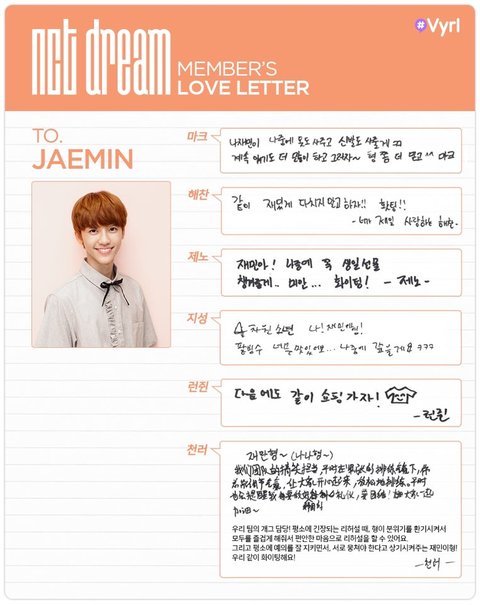 nct dream MEMBER'S
LOVE LETTER
#Vyrl
TO.
JAEMIN
마크
나중에 옷도 사주고 신발도 사줄게
계속 얘기도 더 많이 하고 그러자~ 형 좀 더 믿고 ^^ 마크
해찬
같이 재밌게 다치지 말고 하자!! 홧팅!!
사랑하는 해찬-
제노
재민아! 나중에 꼭 생일선물
챙겨줄게.. 미안... 화이팅! - 제노 -
지성
4차원 소년 나!재민이형!
팥빙수 너무 맛있어요... 나중에 갚을게요 ㅋㅋㅋ
런쥔
다음에도 같이 쇼핑 가자!
-런쥔
천러
재민형~ (나나형~)
우리 팀의 개그 담당! 평소에 긴장되는 리허설 때, 형이 분위기를 환기시켜서
모두를 즐겁게 해줘서 편안한 마음으로 리허설을 할 수 있어요.
그리고 평소에 예의를 잘 지키면서, 서로 뭉쳐야 한다고 상기시켜주는 재민이형!
우리 같이 화이팅해요!
-천러-